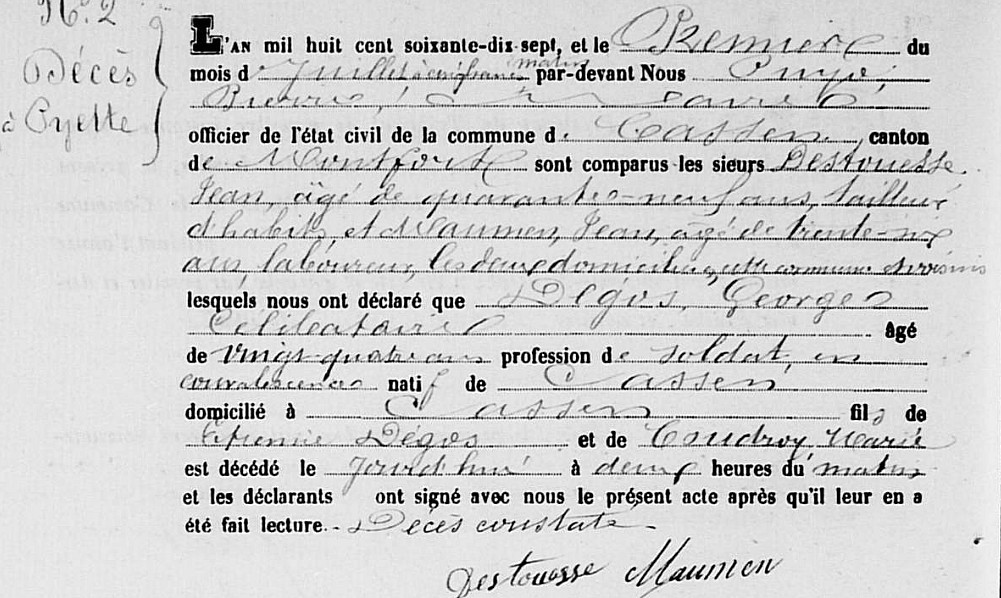 N.º 2
Décès
à Pyette
L'AN mil huit cent soixante-dix-sept, et le Premier du
mois de Juillet à cinq heures matin par-devant Nous Puyo,
Pierre, Maire
officier de l'état civil de la commune de Cassen canton
de Montfort sont comparus les sieurs Destouesse
Jean, âgé de quarante-neuf ans, tailleur
d'habits et Maumen, Jean, âgé de trente-six
ans, laboureur, les deux domiciliés cette commune et voisins
lesquels nous ont déclaré que Dégos, Georges
Célibataire âgé
de vingt-quatre ans profession de soldat, en
convalescence natif de Cassen
domicilié à Cassen fils de
Etienne Dégos et de Coudroy Marie
est décédé le jourd'hui à deux heures du matin
et les déclarants ont signé avec nous le présent acte après qu'il leur en a
été fait lecture. - Décès constaté -
Destouesse Maumen